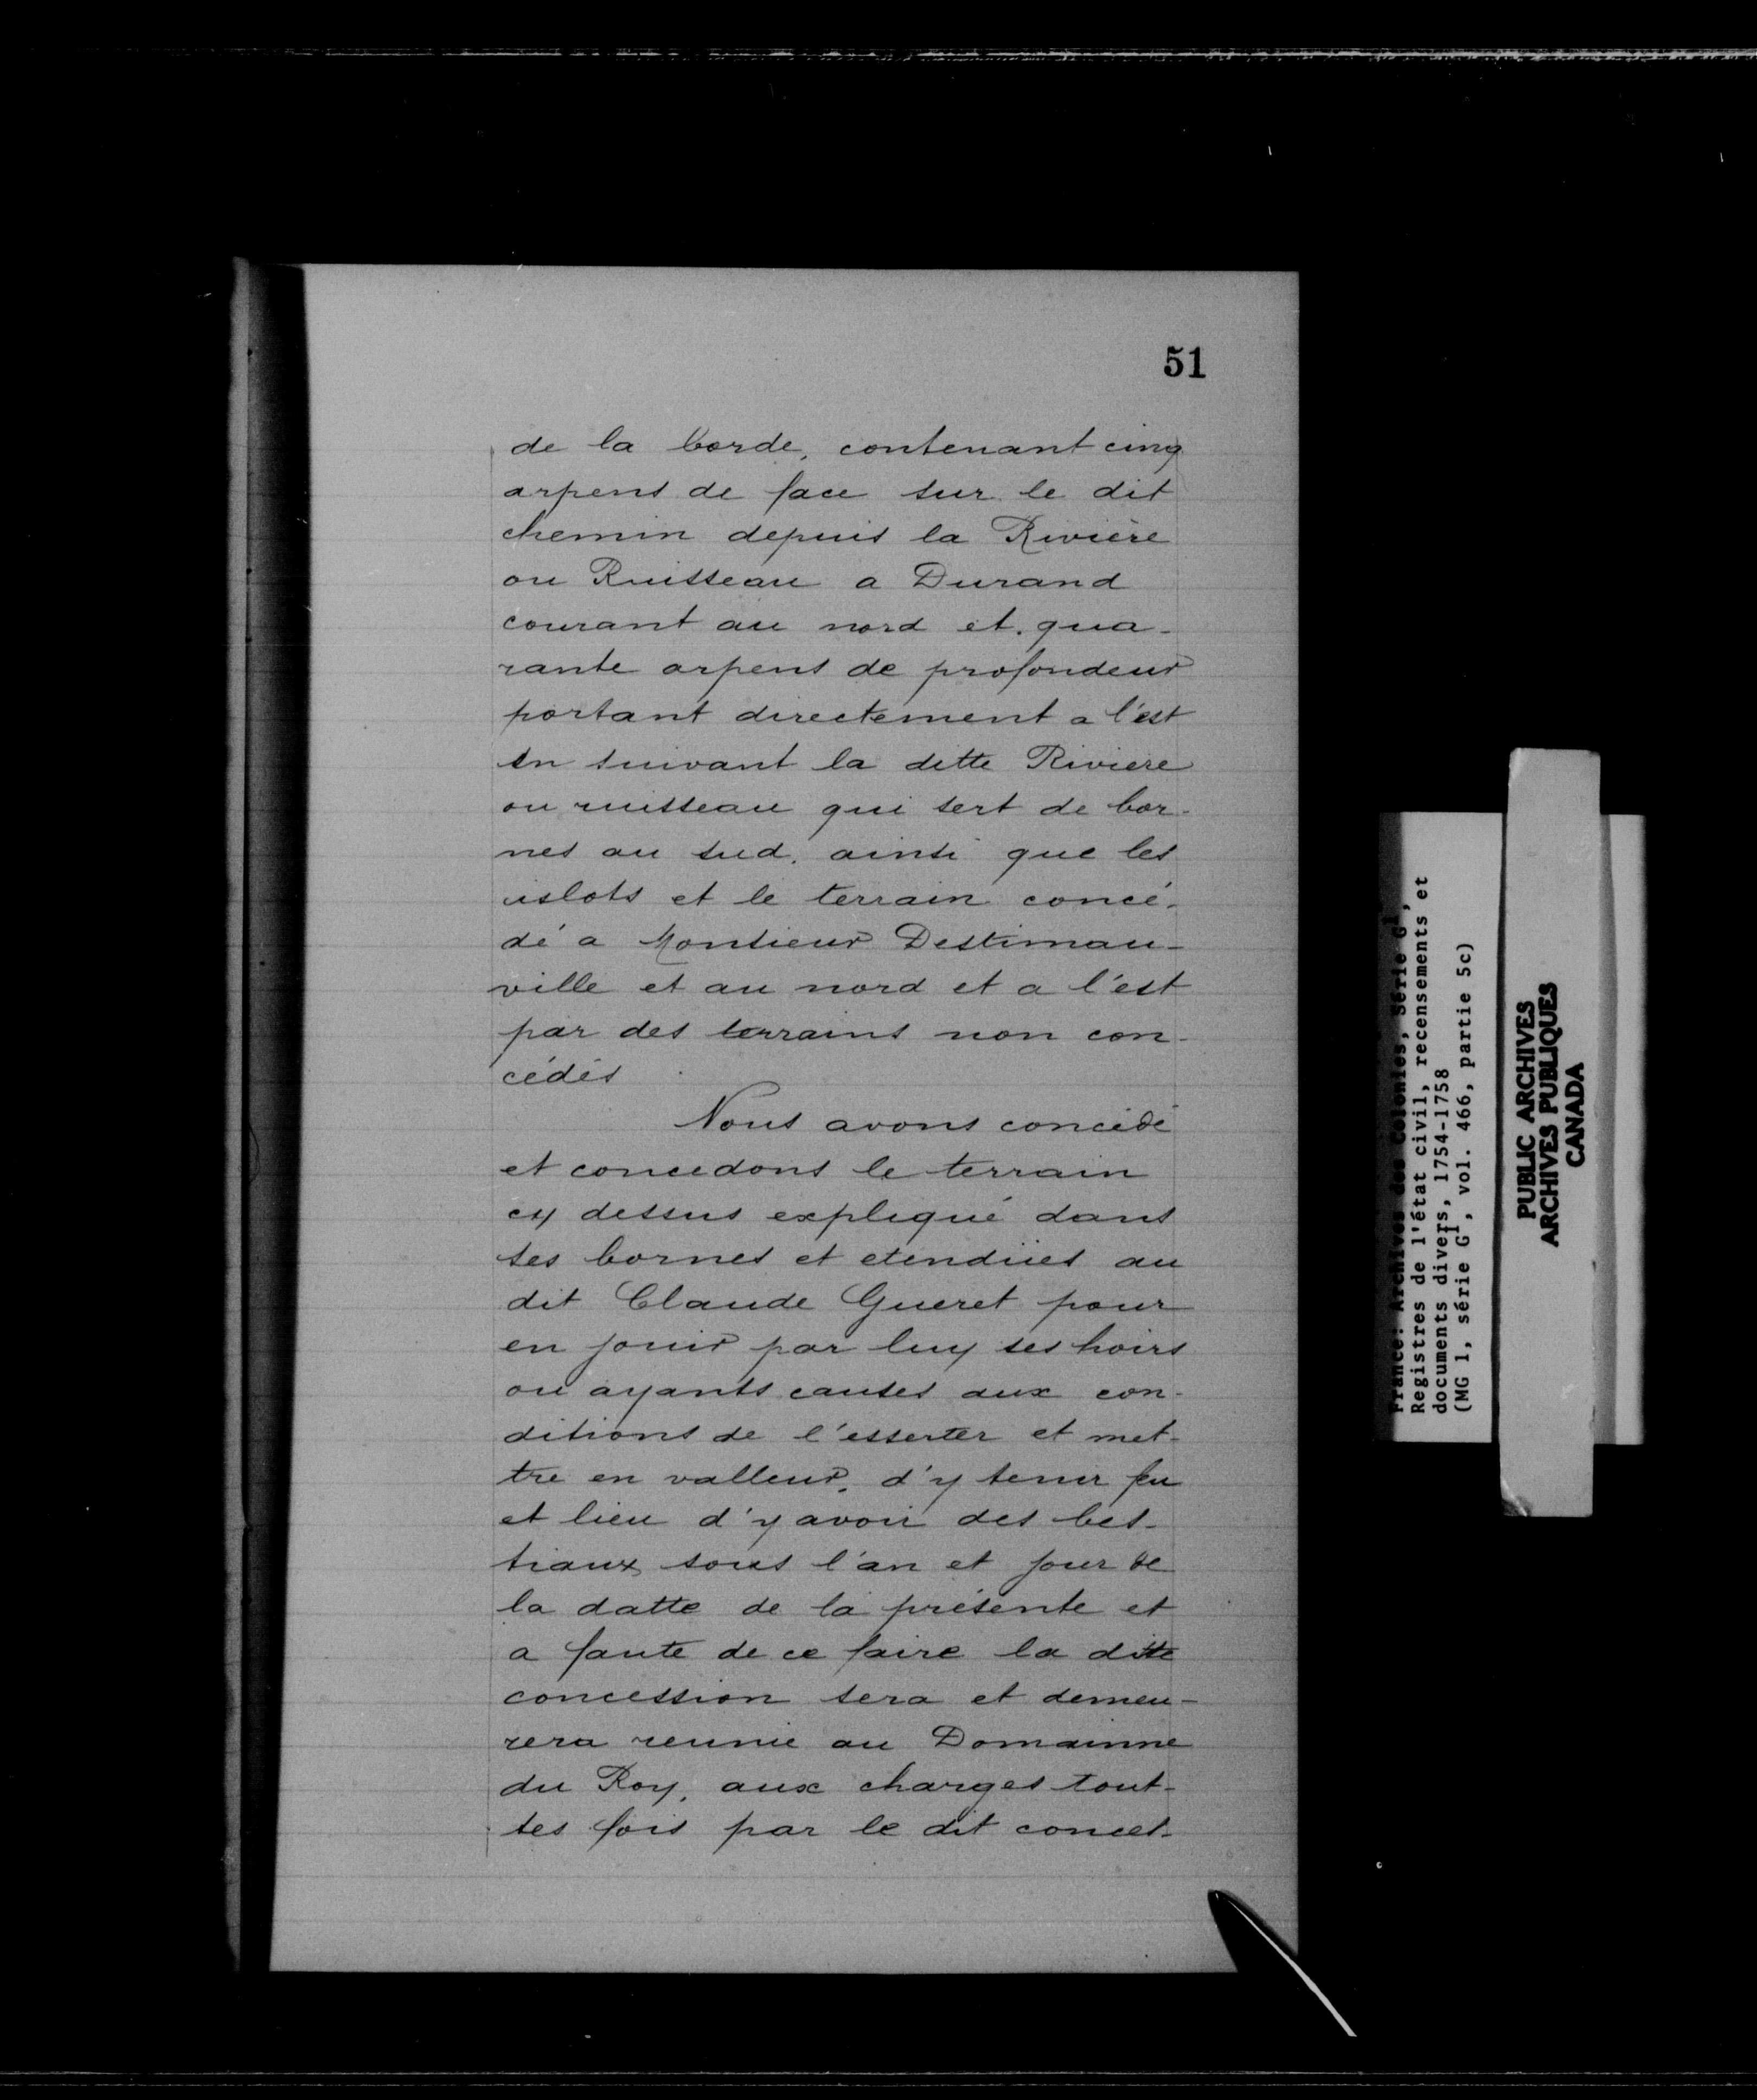 51
de la borde, contenant cinq
arpens de face sur le dit
chemin depuis la Rivière
ou Ruisseau a Durand
courant au nord et. qua-
rante arpens de profondeur
portant directement a l'est
en suivant la ditte Riviere
ou ruisseau qui sert de bor-
nes au sud, ainsi que les
islots et le terrain concé-
dé a Monsieur Destimau-
ville et au nord et a l'est
par des terrains non con-
cédés
Nous avons concédé
et concedons le terrain
cy dessus expliqué dans
ses bornes et etendües au
dit Claude Gueret pour
en jouir par luy ses hoirs
ou ayants causes aux con-
ditions de l'esserter et met-
tre en valleur, d'y tenir feu
et lieu d'y avoir des bes-
tiaux sous l'an et jour de
la datte de la présente et
a faute de ce faire la ditte
concession sera et demeu-
rera reunie au Domainne
du Roy, aux charges tout-
tes fois par le dit conces-
France: Archives des Colonies, Série G¹,
Registres de l'état civil, recensements et
documents divers, 1754-1758
(MG 1, série G¹, vol. 466, partie 5c)
PUBLIC ARCHIVES
ARCHIVES PUBLIQUES
CANADA